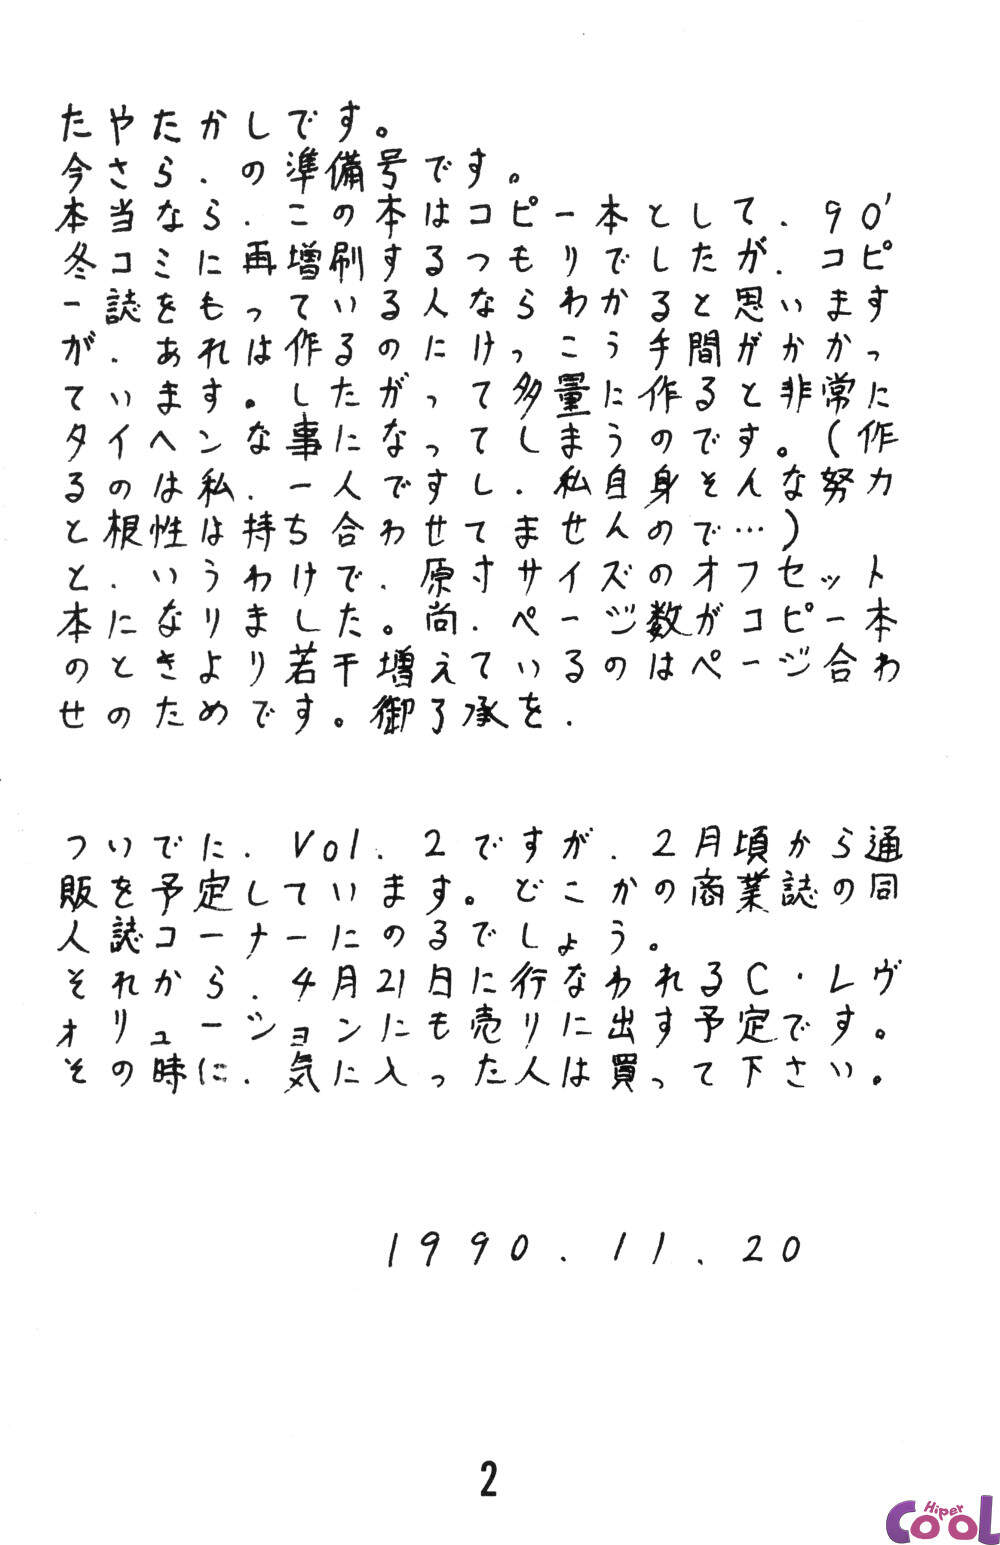 たやたかしです。
今さら．の準備号です。
本当なら．この本はコピー本として．90'
冬コミに再増刷するつもりでしたが．コピ
ー誌をもっている人ならわかると思います
が．あれは作るのにけっこう手間がかかっ
ています。したがって多量に作ると非常に
タイヘンな事になってしまうのです。(作
るのは私．一人ですし．私自身そんな努力
と根性は持ち合わせてませんので…)
と．いうわけで．原寸サイズのオフセット
本になりました。尚．ページ数がコピー本
のときより若干増えているのはページ合わ
せのためです。御了承を．
ついでに．Vol．2ですが．2月頃から通
販を予定しています。どこかの商業誌の同
人誌コーナーにのるでしょう。
それから．4月21日に行なわれるC・レヴ
ォリューションにも売りに出す予定です。
その時に．気に入った人は買って下さい。
1990．11．20
2
Hiper
CooL